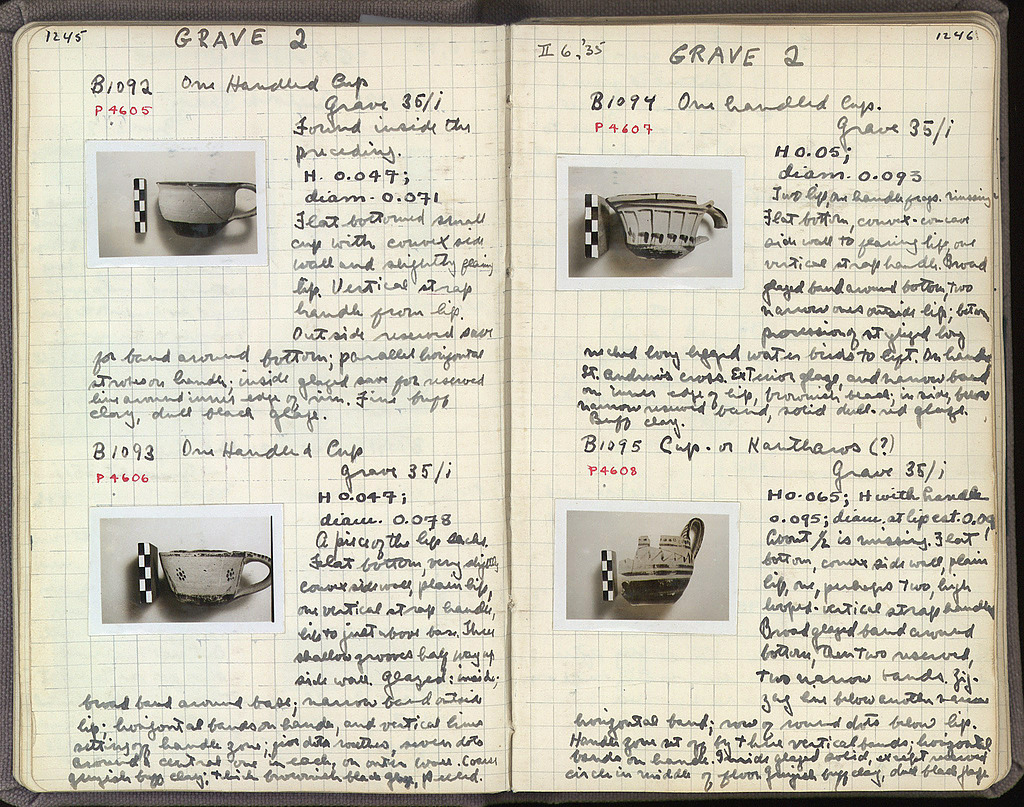 1245
GRAVE 2
B1092 One Handled Cup
P 4605
Grave 35/i
Found inside the
preceding.
H. 0.047;
diam. 0.071
Flat bottomed small
cup with convex side
wall and slightly flaring
lip. Vertical strap
handle from lip.
Outside reserved save
for band around bottom; parallel horizontal
strokes on handle. inside glazed save for reserved
line around inner edge of rim. Fine buff
clay, dull black glaze.
B1093 One Handled Cup
P 4606
Grave 35/i
H 0.047;
diam. 0.078
A piece of the lip lacks.
Flat bottom very slightly
convex side wall, plain lip,
one vertical strap handle,
lip to just above base. Three
shallow grooves half way up
side wall. Glazed: inside;
broad band around base; narrow band outside
lip; horizontal bands on handle, and vertical lines
setting off handle zone; dots rosettes, seven dots
around a central one in each, on outer walls. Coarse
greyish buff clay; thin brownish black glaze, peeled.
1246
II 6, '35
GRAVE 2
B1094 One handled Cup.
P 4607
Grave 35/i
H 0.05;
diam. 0.093
Two lip and handle frags. missing
Flat bottom, convex-concave
side wall to flaring lip, one
vertical strap handle. Broad
glazed band around bottom, two
narrow ones outside lip; between
procession of stylized long
necked long legged water birds to left. On handle
St. Andrew's cross. Exterior glaze, and narrow band
on inner edge of lip, brownish black; inside, below
narrow reserved band, solid dull red glaze.
Buff clay.
B1095 Cup or Kantharos (?)
P 4608
Grave 35/i
H 0.065; H with handle
0.095; diam. at lip est. 0.09
About 1/2 is missing. Flat
bottom, convex side wall, plain
lip, one, perhaps two, high
looped vertical strap handles
Broad glazed band around
bottom, then two reserved,
two narrow bands. Zig-
zag line below another narrow
horizontal band; row of round dots below lip.
Handle zone set off by three vertical bands; horizontal
bands on handle. Inside glazed solid, except reserved
circle in middle of floor. Greyish buff clay, dull black glaze